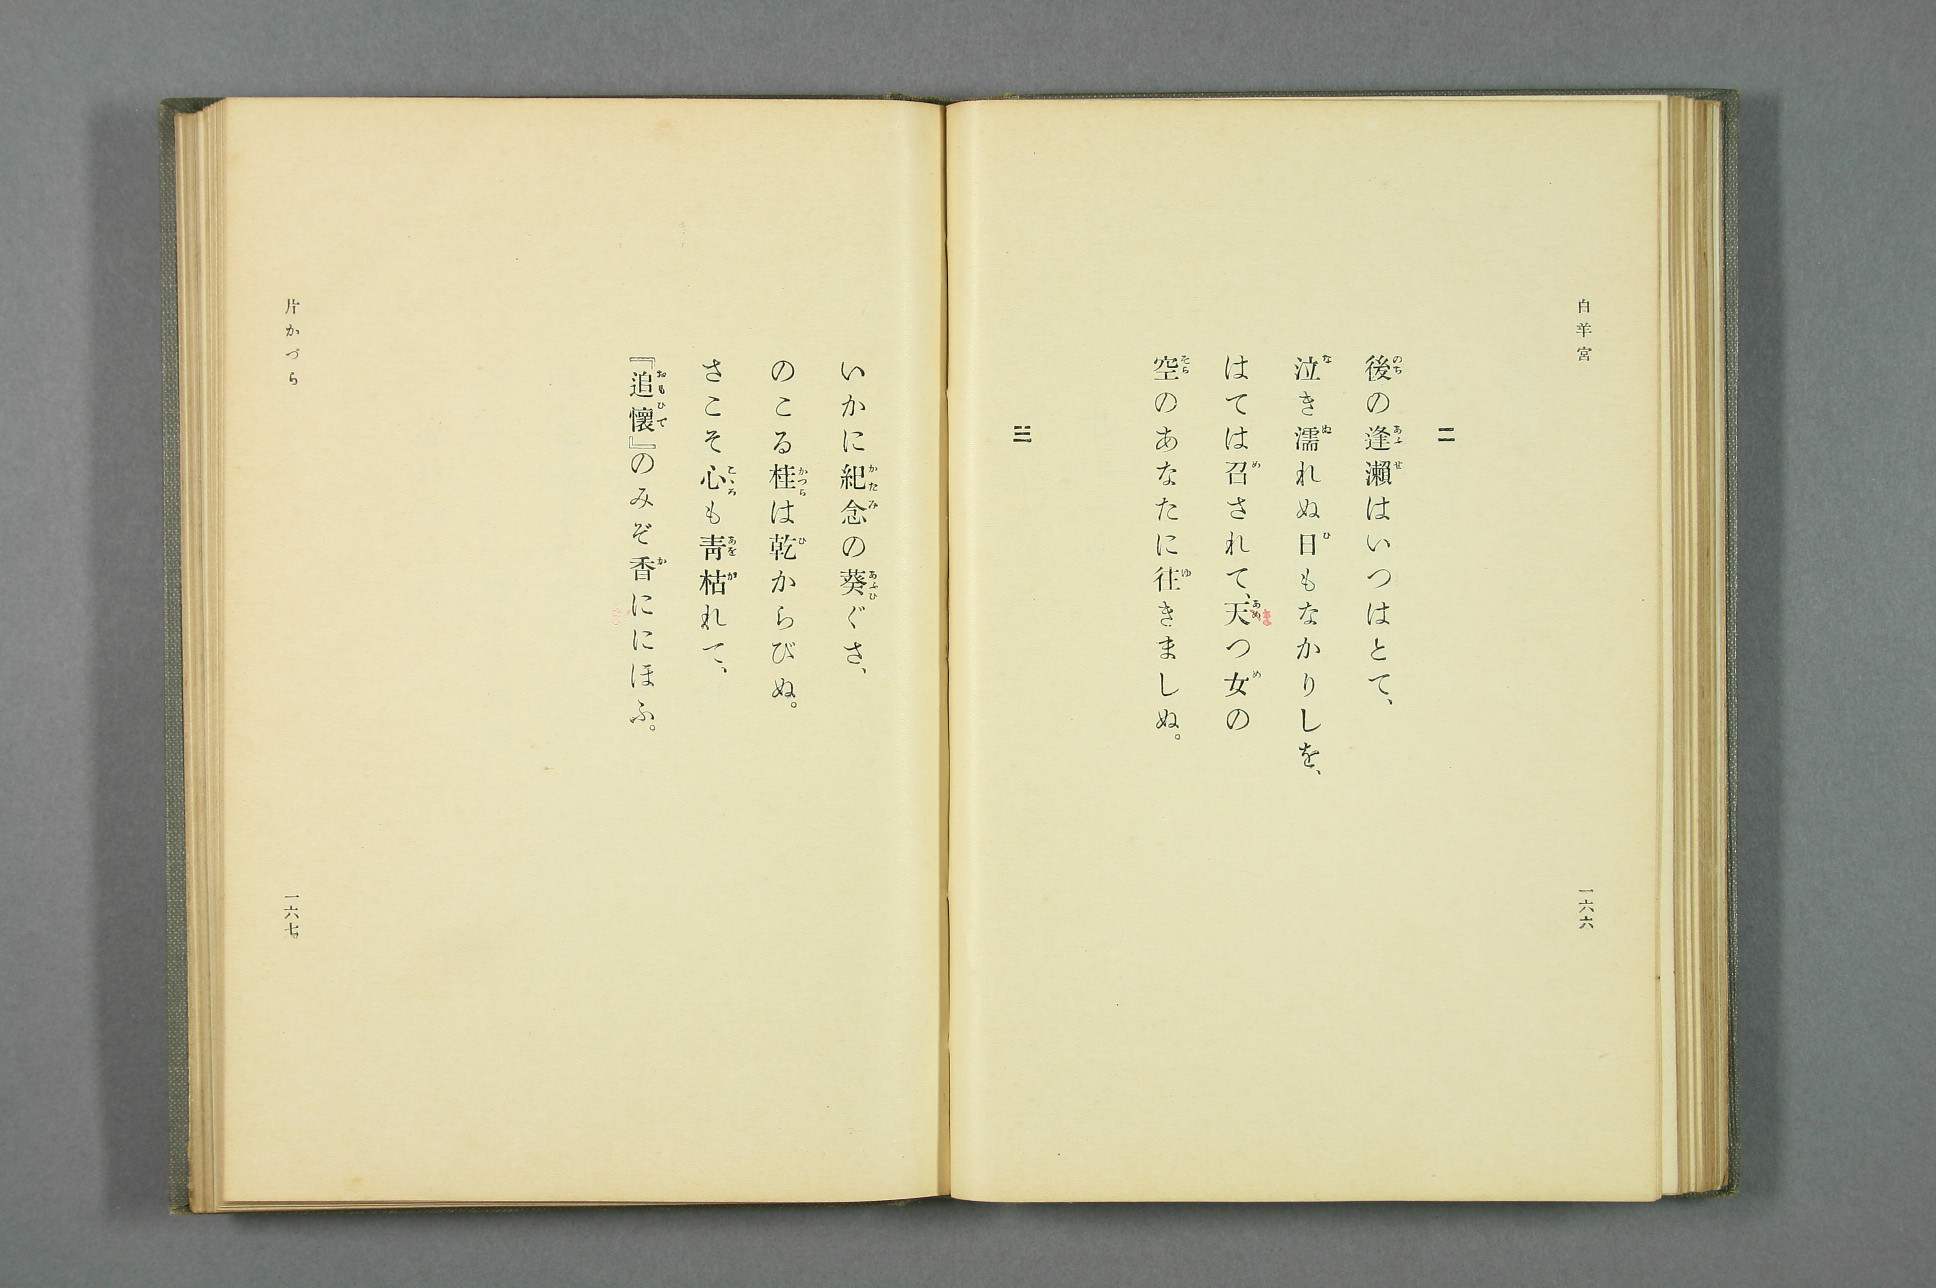 白羊宮
二
後の逢瀬はいつはとて、
泣き濡れぬ日もなかりしを、
はては召されて、天つ女の
空のあなたに往きましぬ。
三
一六六
いかに紀念の葵ぐさ、
のこる桂は乾からびぬ。
さこそ心も靑枯れて、
『追懷』のみぞ香ににほふ。
片かづら
一六七